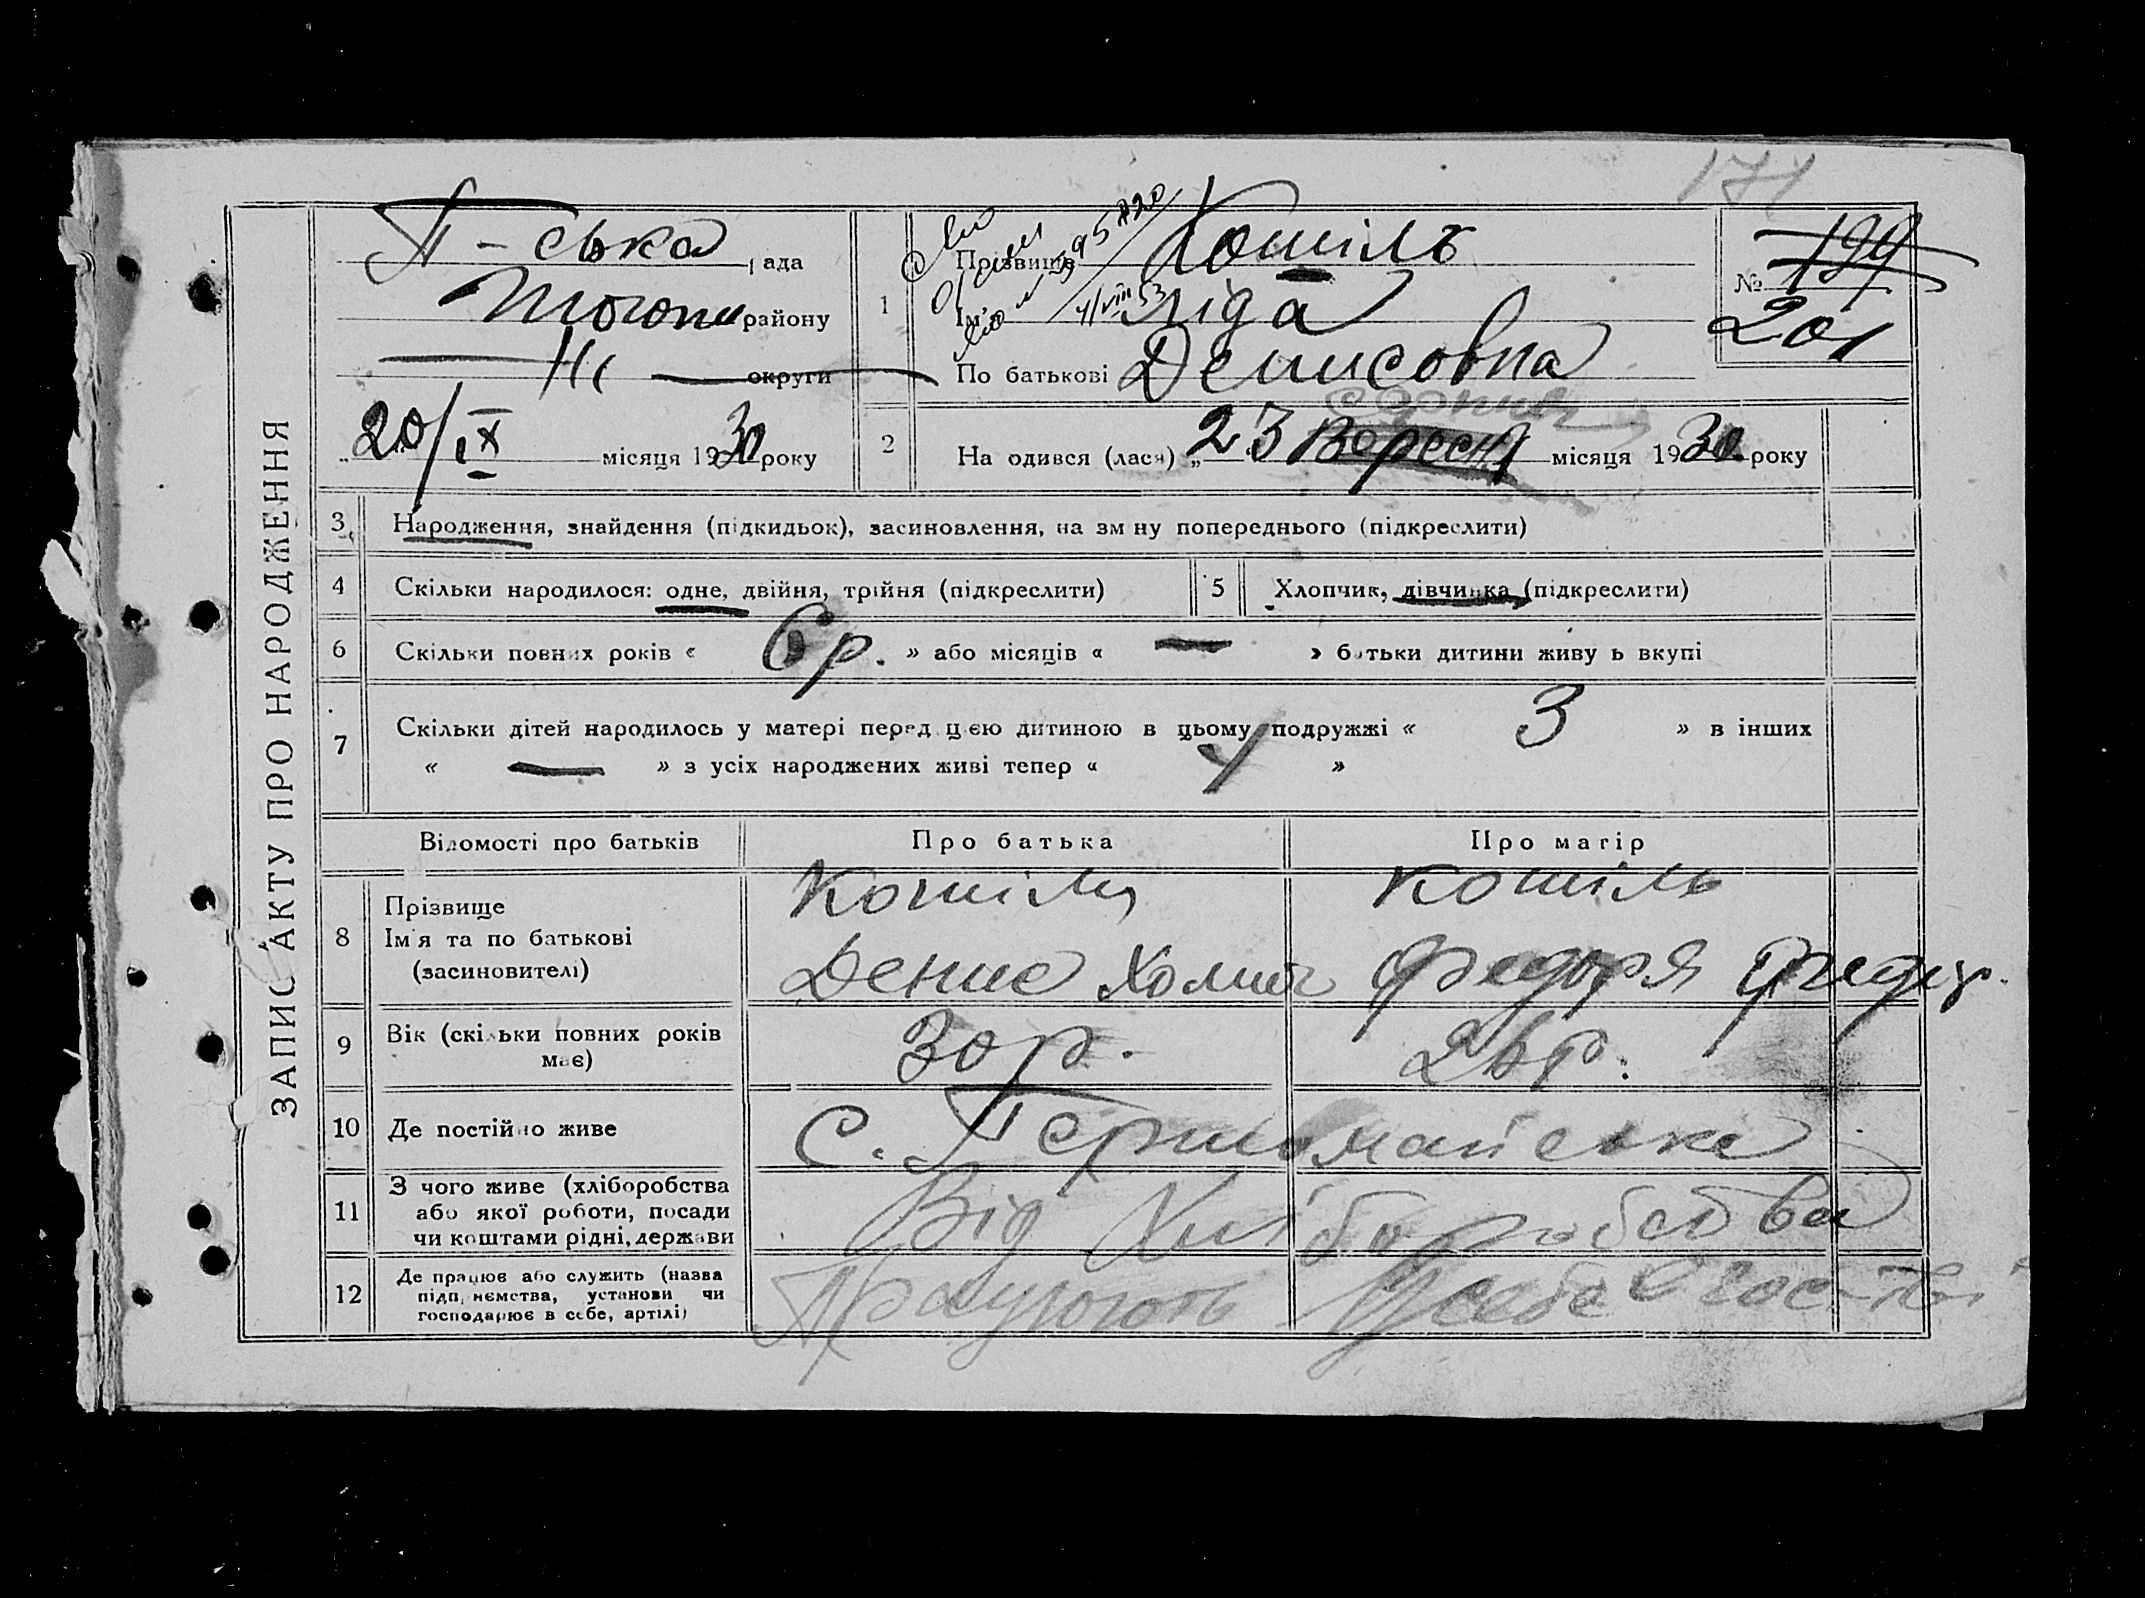 171
ЗАПИС АКТУ ПРО НАРОДЖЕННЯ
П-ська рада
району
округи
20/IX місяця 1930 року
1 Прізвище Кошіль
Ім'я Ліда
По батькові Денисовна
№ 199
201
2 Народився (лася) „ 23 Вересня місяця 1930 року
3 Народження, знайдення (підкидьок), засиновлення, на зміну попереднього (підкреслити)
4 Скільки народилося: одне, двійня, трійня (підкреслити) 5 Хлопчик, дівчинка (підкреслити)
6 Скільки повних років « 6 р. » або місяців « — » батьки дитини живуть вкупі
7 Скільки дітей народилось у матері перед цією дитиною в цьому подружжі « 3 » в інших
« — » з усіх народжених живі тепер « 4 »
Відомості про батьків Про батька Про матір
8 Прізвище Кошіль Кошіль
Ім'я та по батькові
(засиновителі) Денис Хомич Федоря Федір.
9 Вік (скільки повних років 30 р. 26 р.
має)
10 Де постійно живе с. Первомайське
11 З чого живе (хліборобства Від Хліборобства
або якої роботи, посади
чи коштами рідні, держави
12 Де працює або служить (назва Працюють
підприємства, установи чи
господарює в себе, артілі)